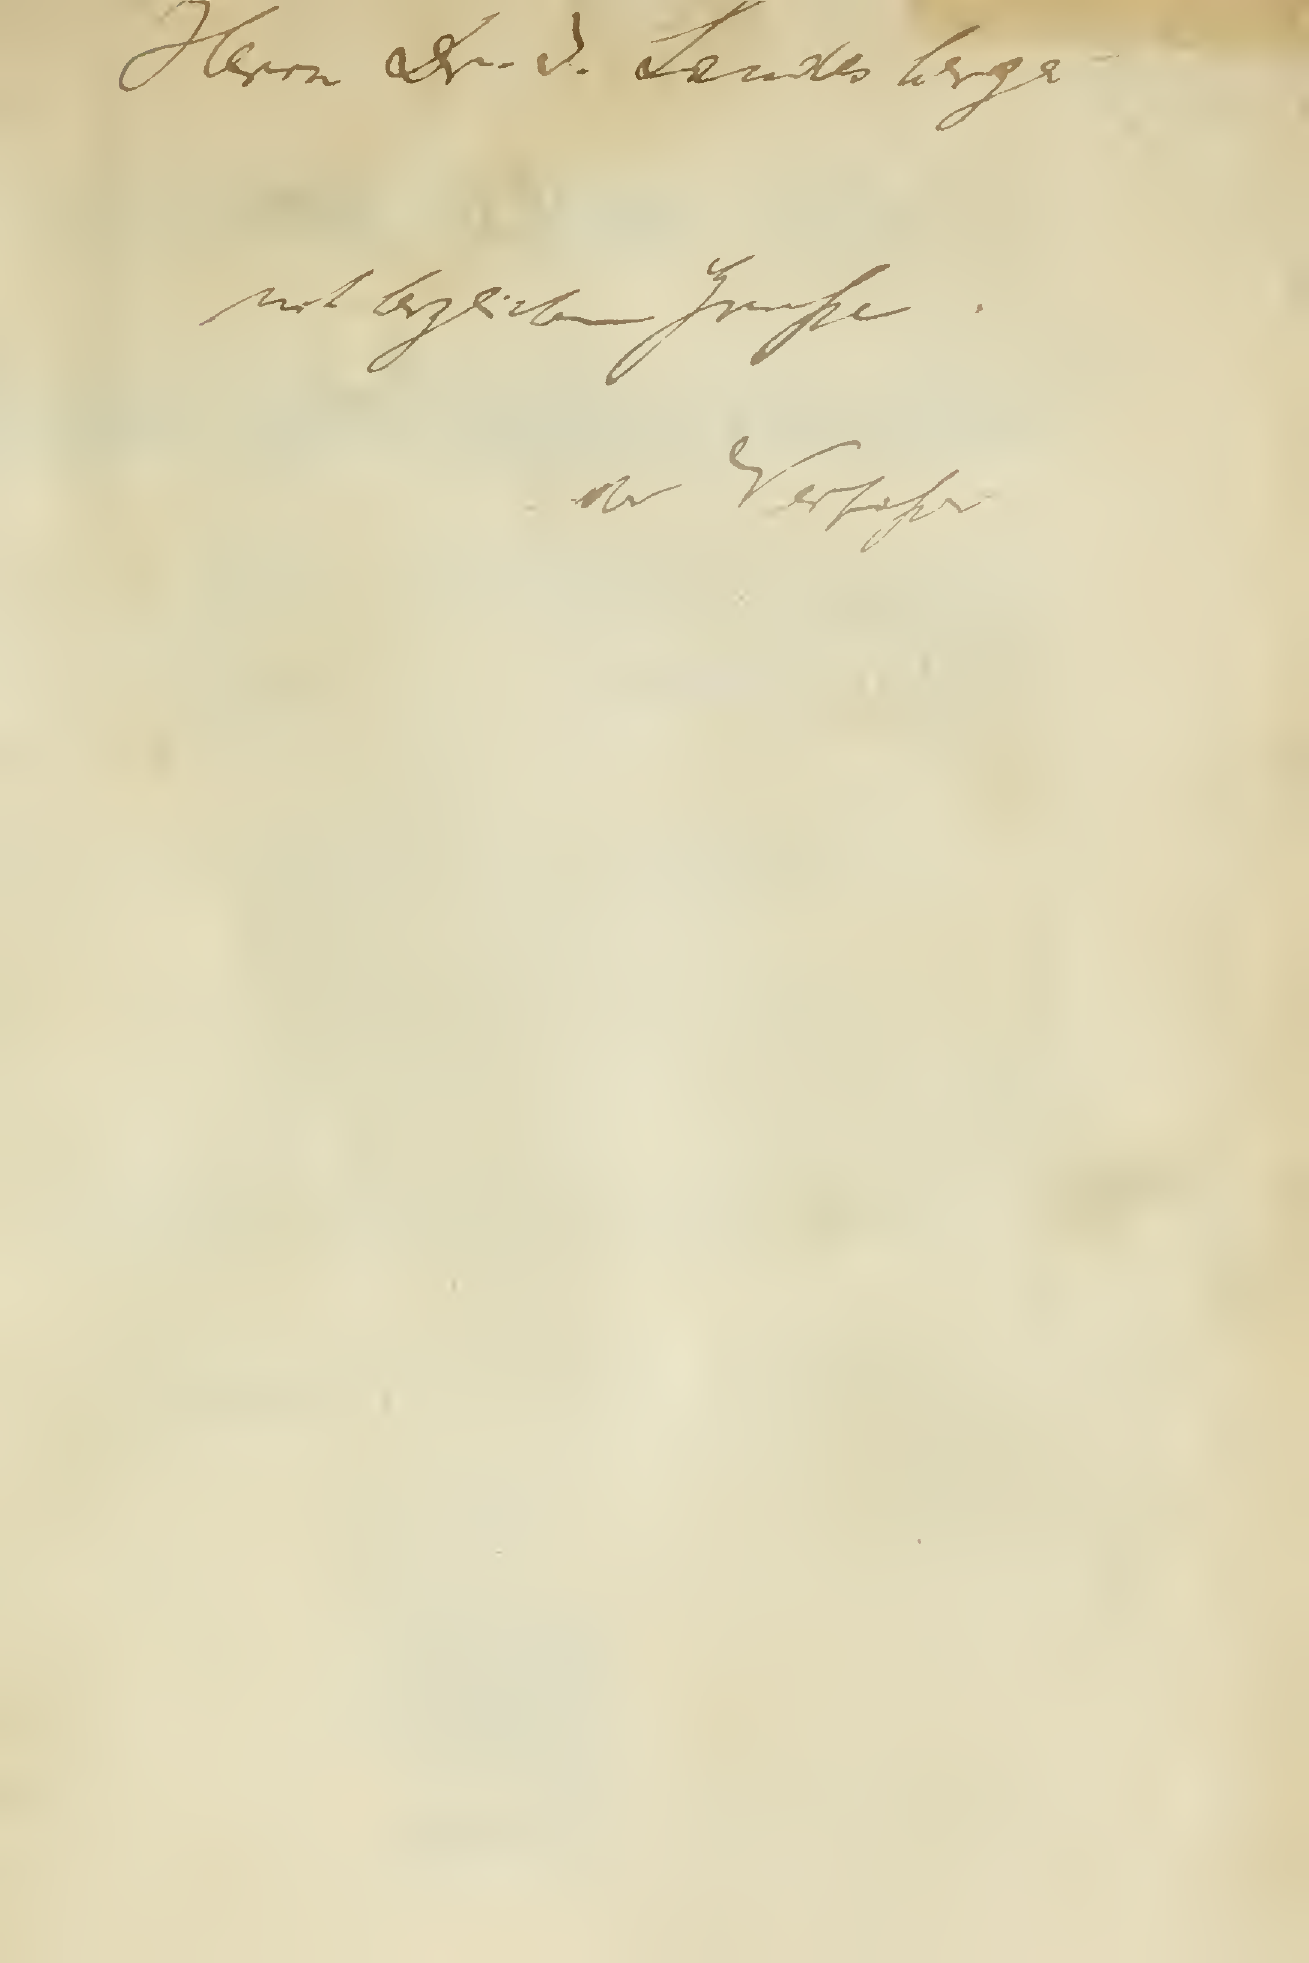 Herrn Dr. J. Landesberger
mit herzlichem Gruße.
der Verfasser